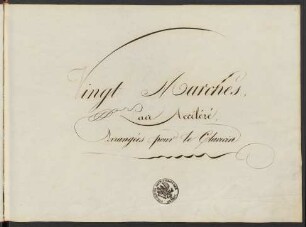 Vingt Marches,
Pas Accéléré,
Arrangées pour le Clavecin